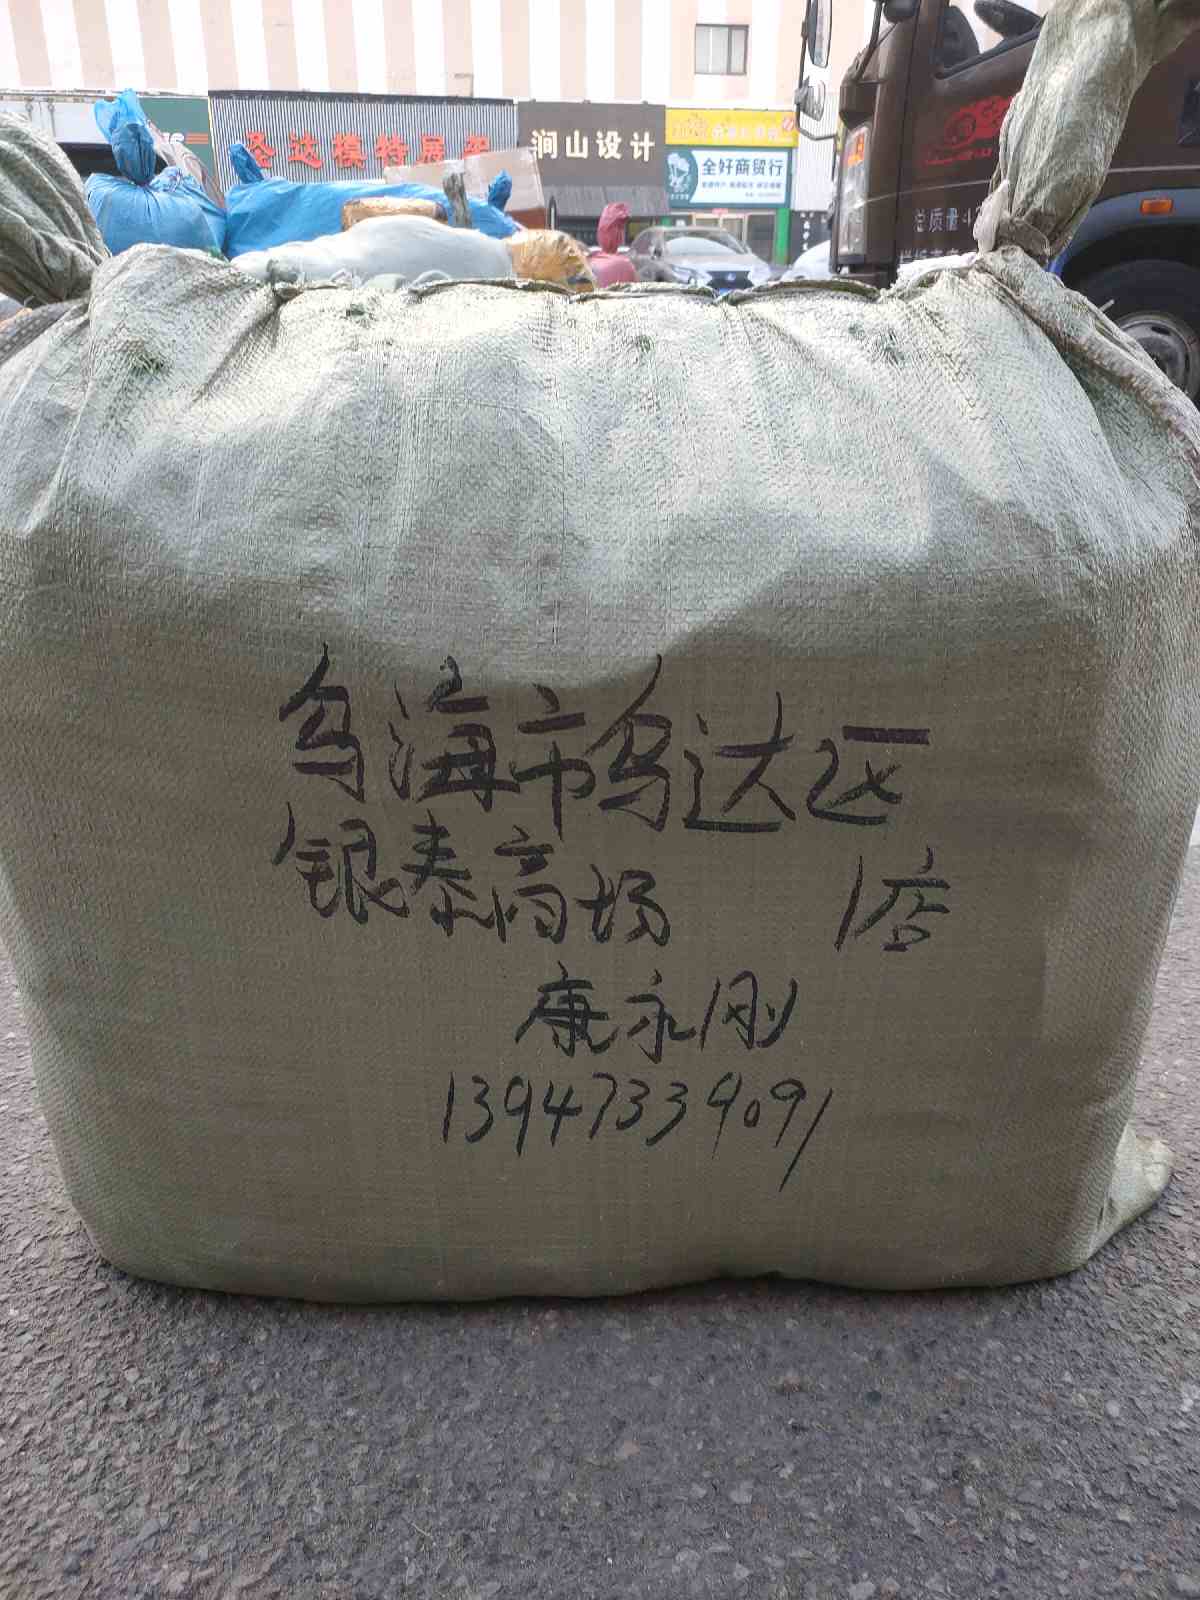 圣达模特展架
涧山设计
全好商贸行
总质量4
乌海市乌达区
银泰商场 1店
康永刚
13947339091